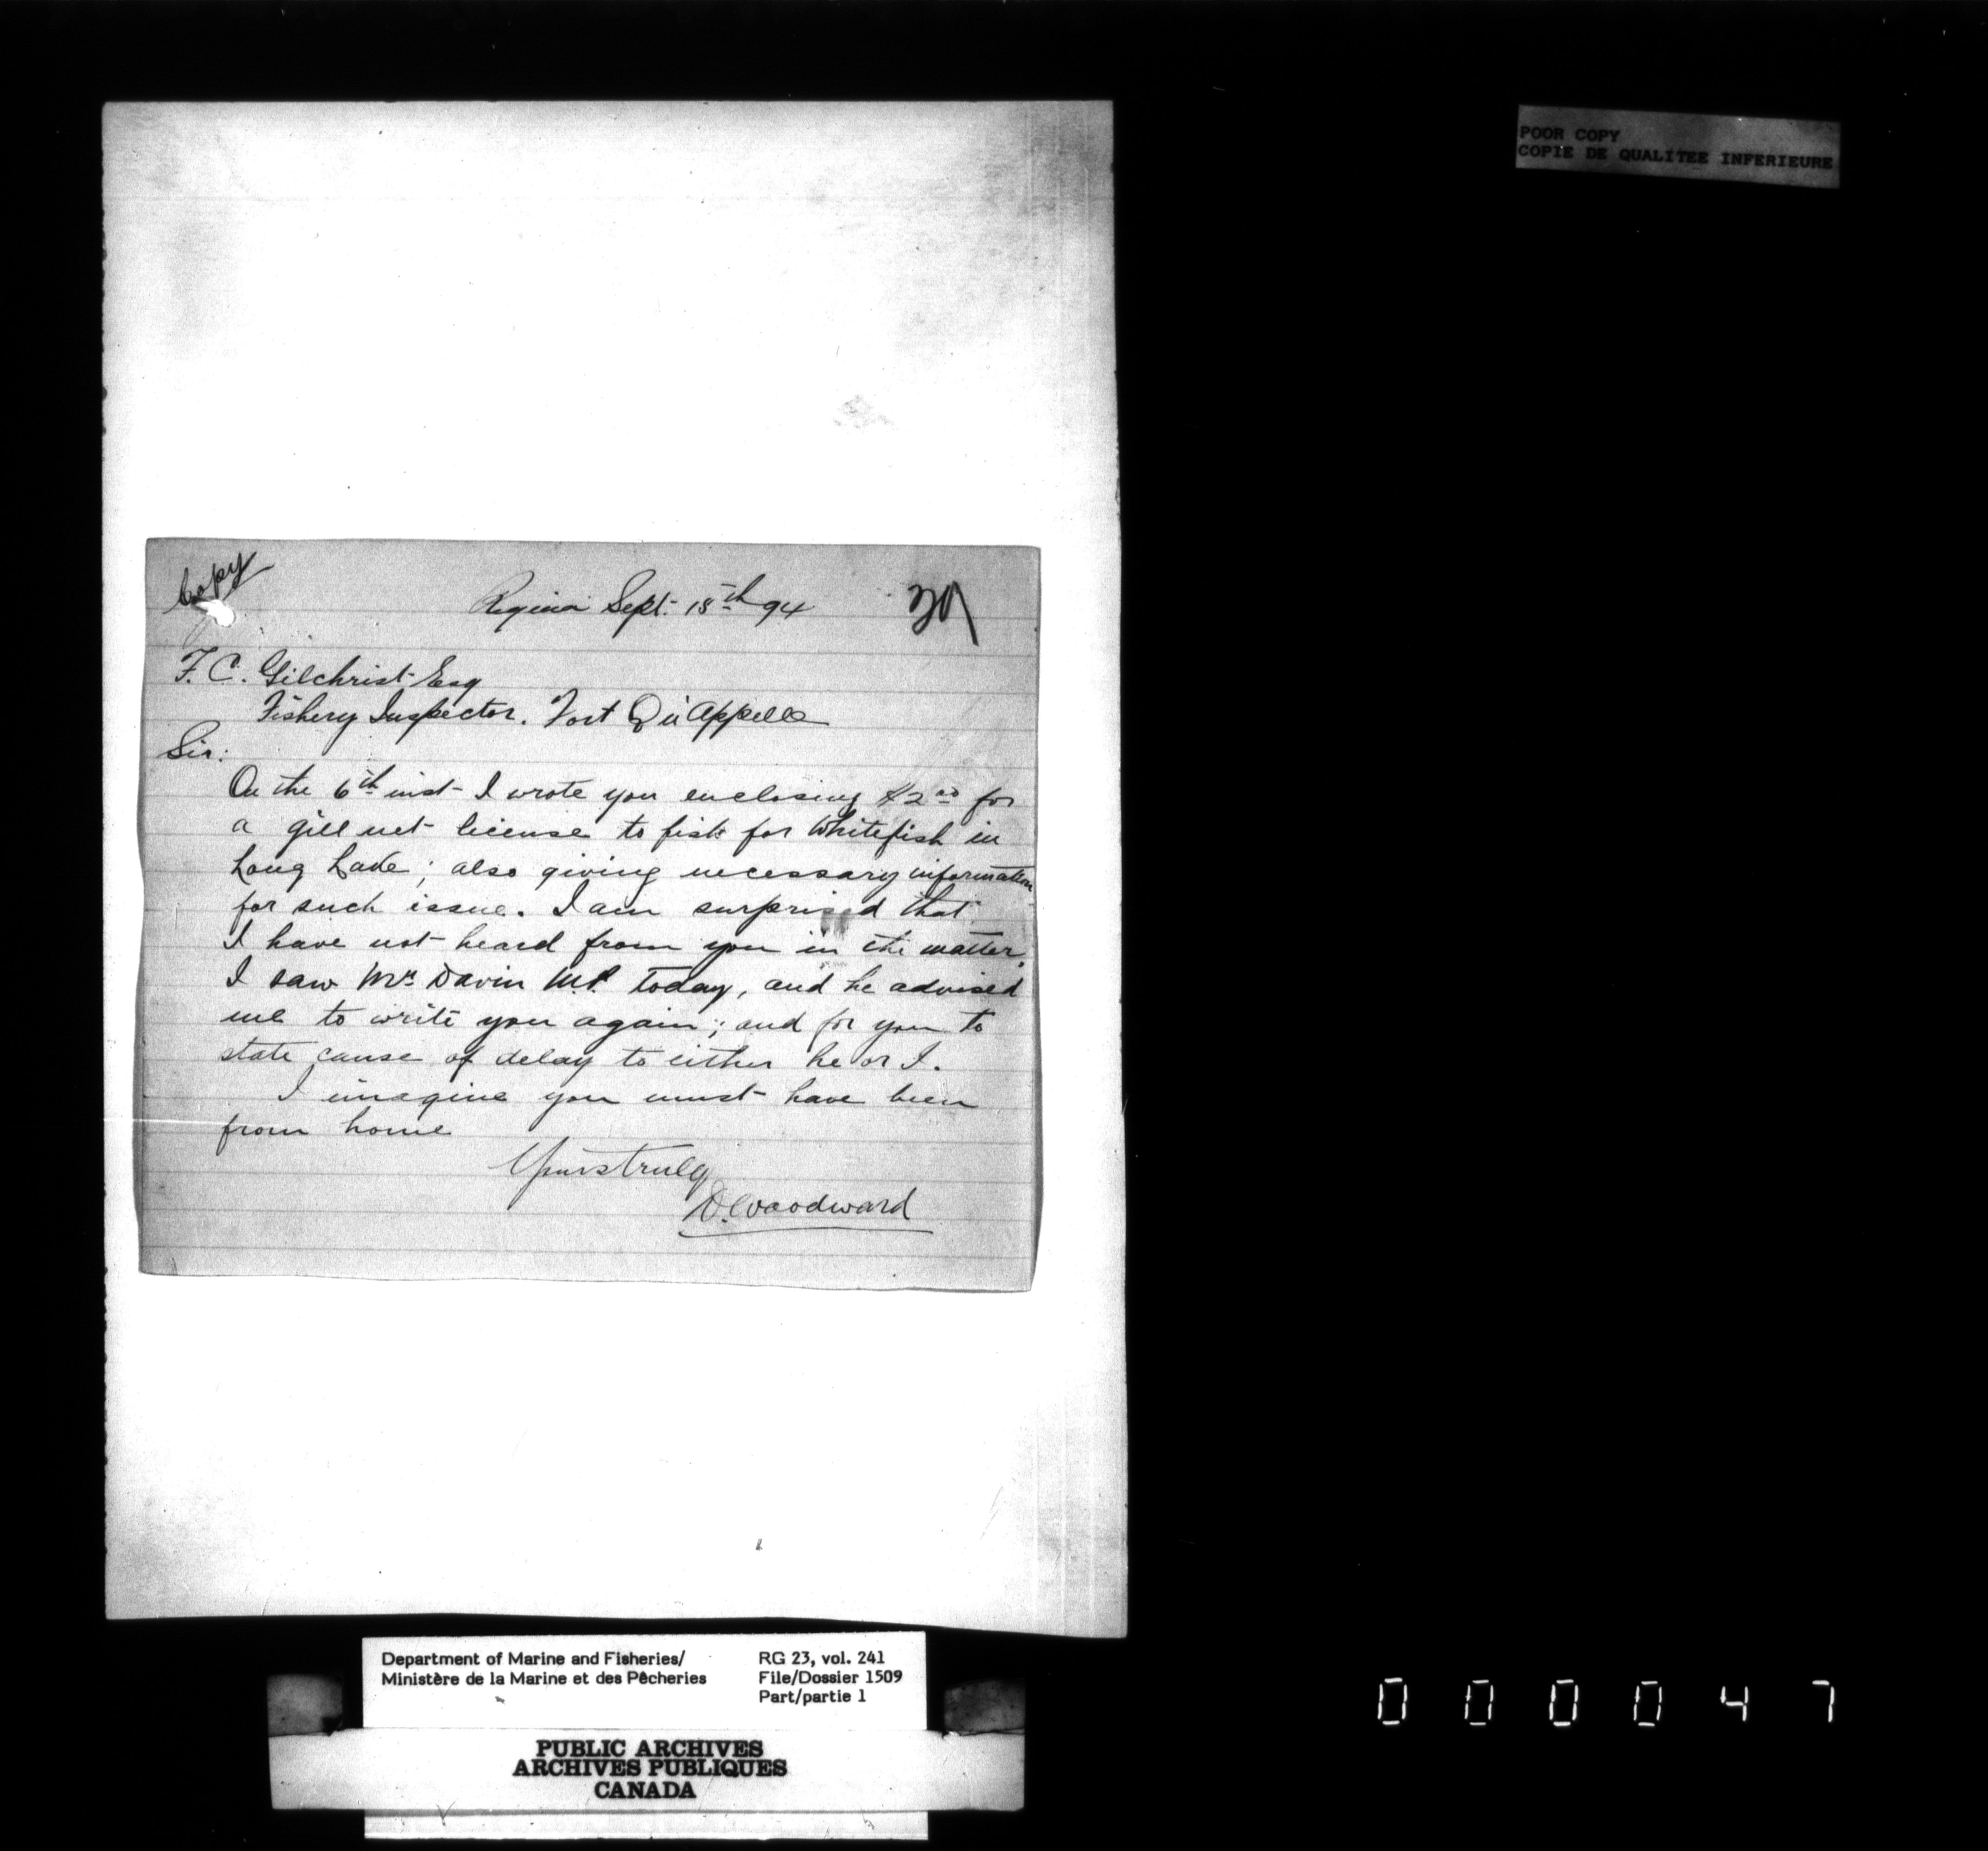 POOR COPY
COPIE DE QUALITEE INFERIEURE
Copy
Regina Sept. 18th 94
F. C. Gilchrist Esq
Fishery Inspector. Fort Qu'Appelle
Sir:
On the 6th inst - I wrote you enclosing $2.00 for
a gill net license to fish for Whitefish in
Long Lake; also giving necessary information
for such issue. I am surprised that
I have not heard from you in the matter.
I saw Mr. Davin M.P. today, and he advised
me to write you again; and for you to
state cause of delay to either he or I.
I imagine you must have been
from home
Yours truly
D. Woodward
Department of Marine and Fisheries/
Ministère de la Marine et des Pêcheries
RG 23, vol. 241
File/Dossier 1509
Part/partie 1
PUBLIC ARCHIVES
ARCHIVES PUBLIQUES
CANADA
000047